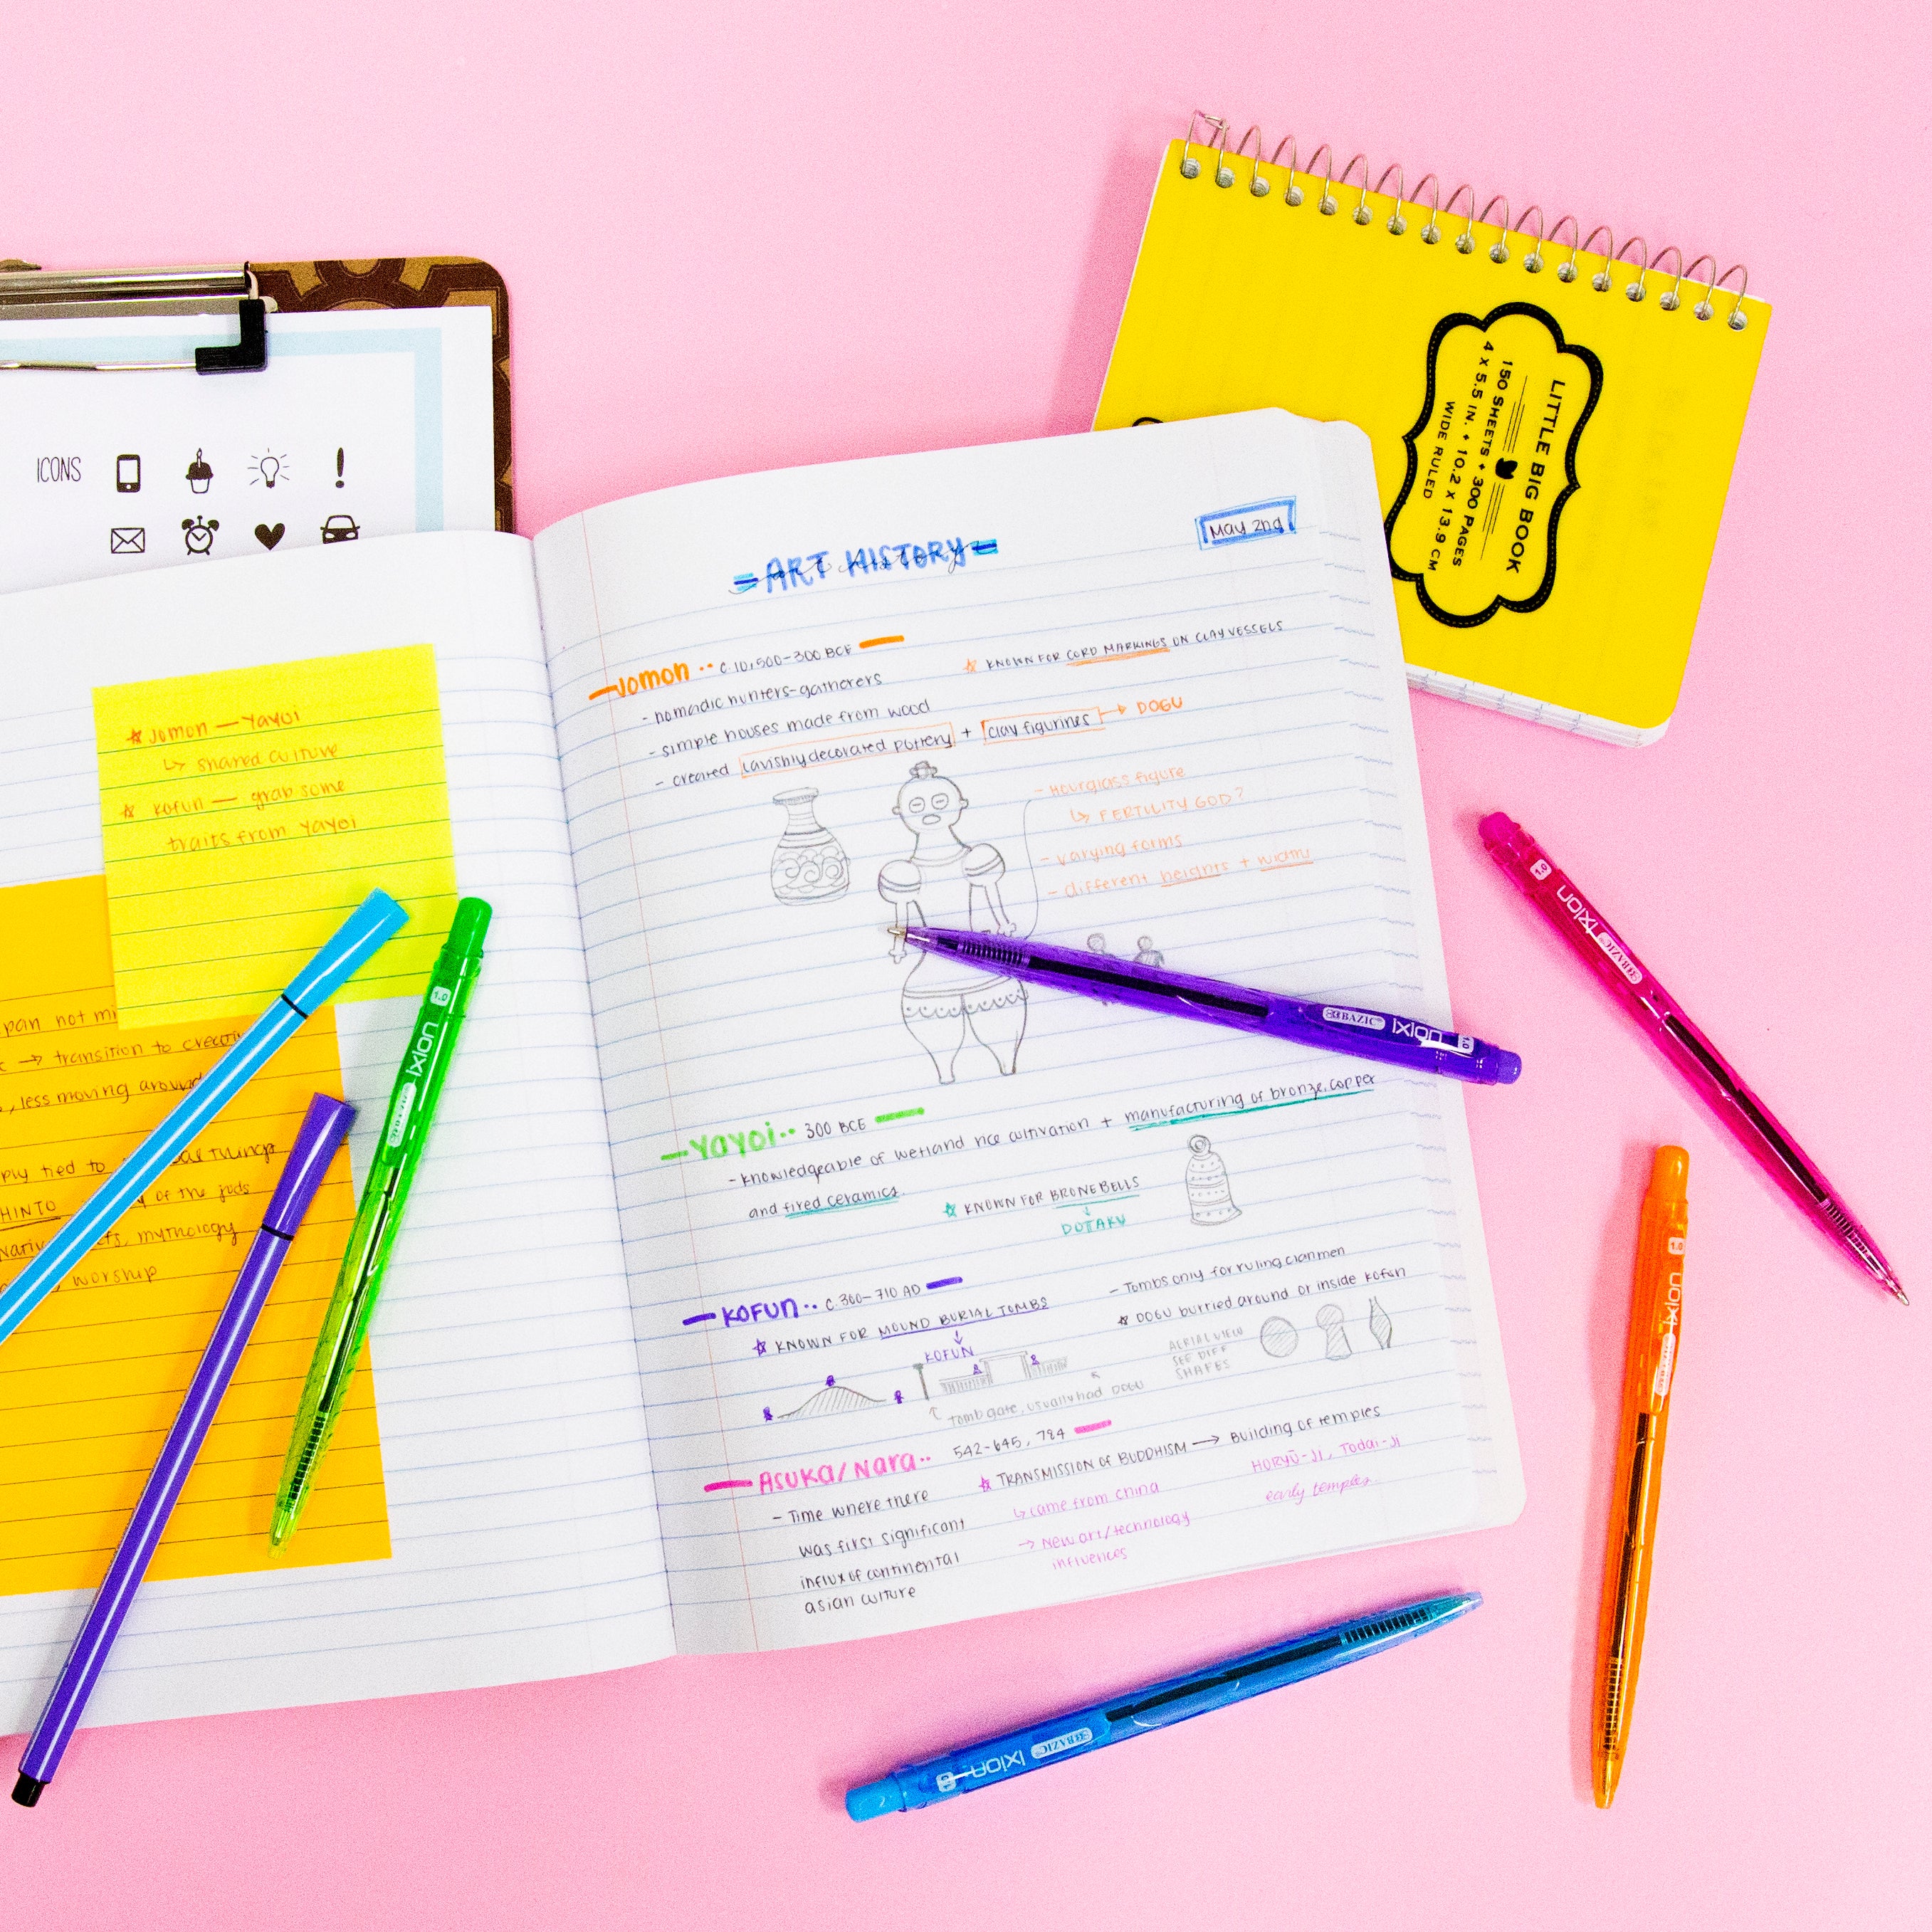 ICONS
LITTLE BIG BOOK
150 SHEETS + 300 PAGES
4 X 5.5 IN. + 10.2 X 13.9 CM
WIDE RULED
☆ Jomon — Yayoi
↳ shared culture
☆ Kofun — grab some
traits from Yayoi
pan not mi
→ transition to creatin
, less moving around
ply tied to
HINTO
of the gods
, mythology
worship
May 2nd
= ART HISTORY =
Jomon ·· c. 10,500-300 BCE
☆ KNOWN FOR CORD MARKINGS ON CLAY VESSELS
- nomadic hunters-gatherers
- simple houses made from wood
- created lavishly decorated pottery + clay figurines → DOGU
- Hourglass figure
↳ FERTILITY GOD?
- varying forms
- different heights + width
Yayoi ·· 300 BCE
- knowledgeable of wetland rice cultivation + manufacturing of bronze, copper
and fired ceramics
☆ KNOWN FOR BRONE BELLS
↓
DOTAKU
KOFUN ·· c. 300-710 AD
☆ KNOWN FOR MOUND BURIAL TOMBS
↓
KOFUN
- Tombs only for ruling clanmen
☆ DOGU burried around or inside kofun
AERIAL VIEW
SEE DIFF
SHAPES
Tomb gate, usually had DOGU
ASUKA/Nara ·· 542-645, 784
- Time where there
was first significant
influx of continental
asian culture
☆ TRANSMISSION OF BUDDHISM → Building of temples
↳ came from china
→ New art/technology
influences
HORYŪ-JI, Todai-Ji
early temples
BAZIC ixion 1.0
BAZIC ixion 1.0
BAZIC ixion 1.0
BAZIC ixion 1.0
BAZIC ixion